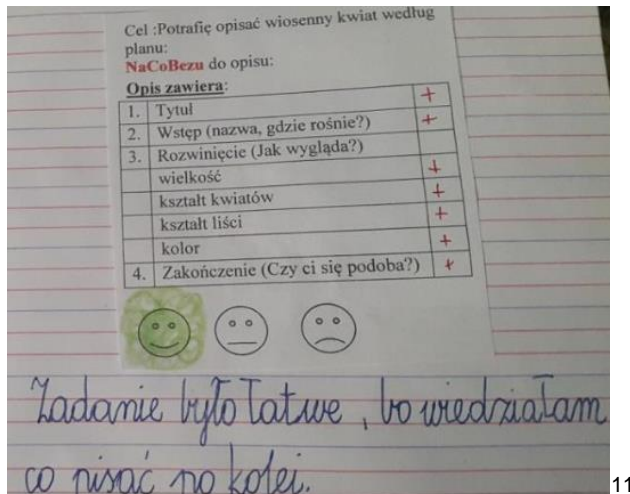 Cel :Potrafię opisać wiosenny kwiat według
planu:
NaCoBezu do opisu:
Opis zawiera:
1. Tytuł +
2. Wstęp (nazwa, gdzie rośnie?) +
3. Rozwinięcie (Jak wygląda?)
wielkość +
kształt kwiatów +
kształt liści +
kolor +
4. Zakończenie (Czy ci się podoba?) +
Zadanie było łatwe, bo wiedziałam
co pisać po kolei.
11